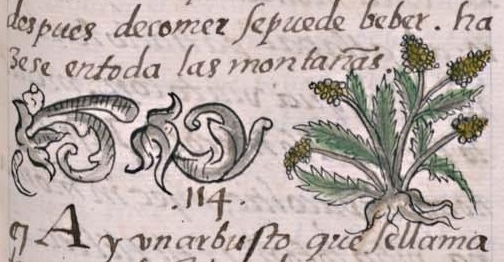 despues decomer sepuede beber. ha
zese entoda las montañas
.114.
¶ Ay vnarbusto que sellama